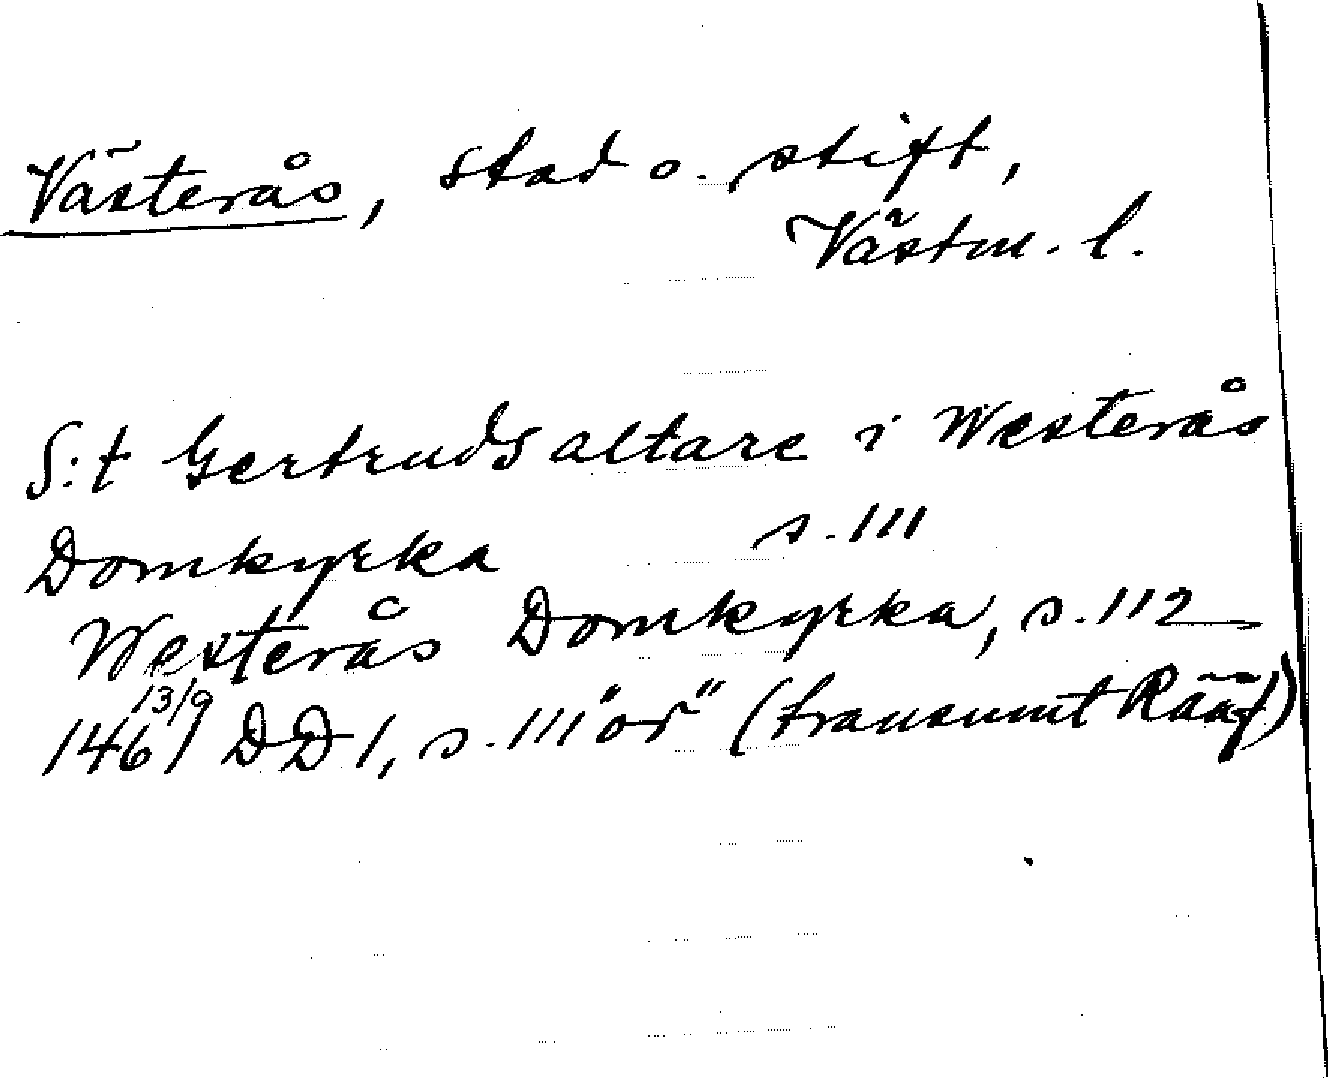 Västerås, stad o. stift,
Västm. l.
S:t Gertruds altare i Westerås
Domkyrka s. 111
Westerås Domkyrka, s. 112
13/9
1461 DD 1, s. 111 "or" (transumt Rääf)